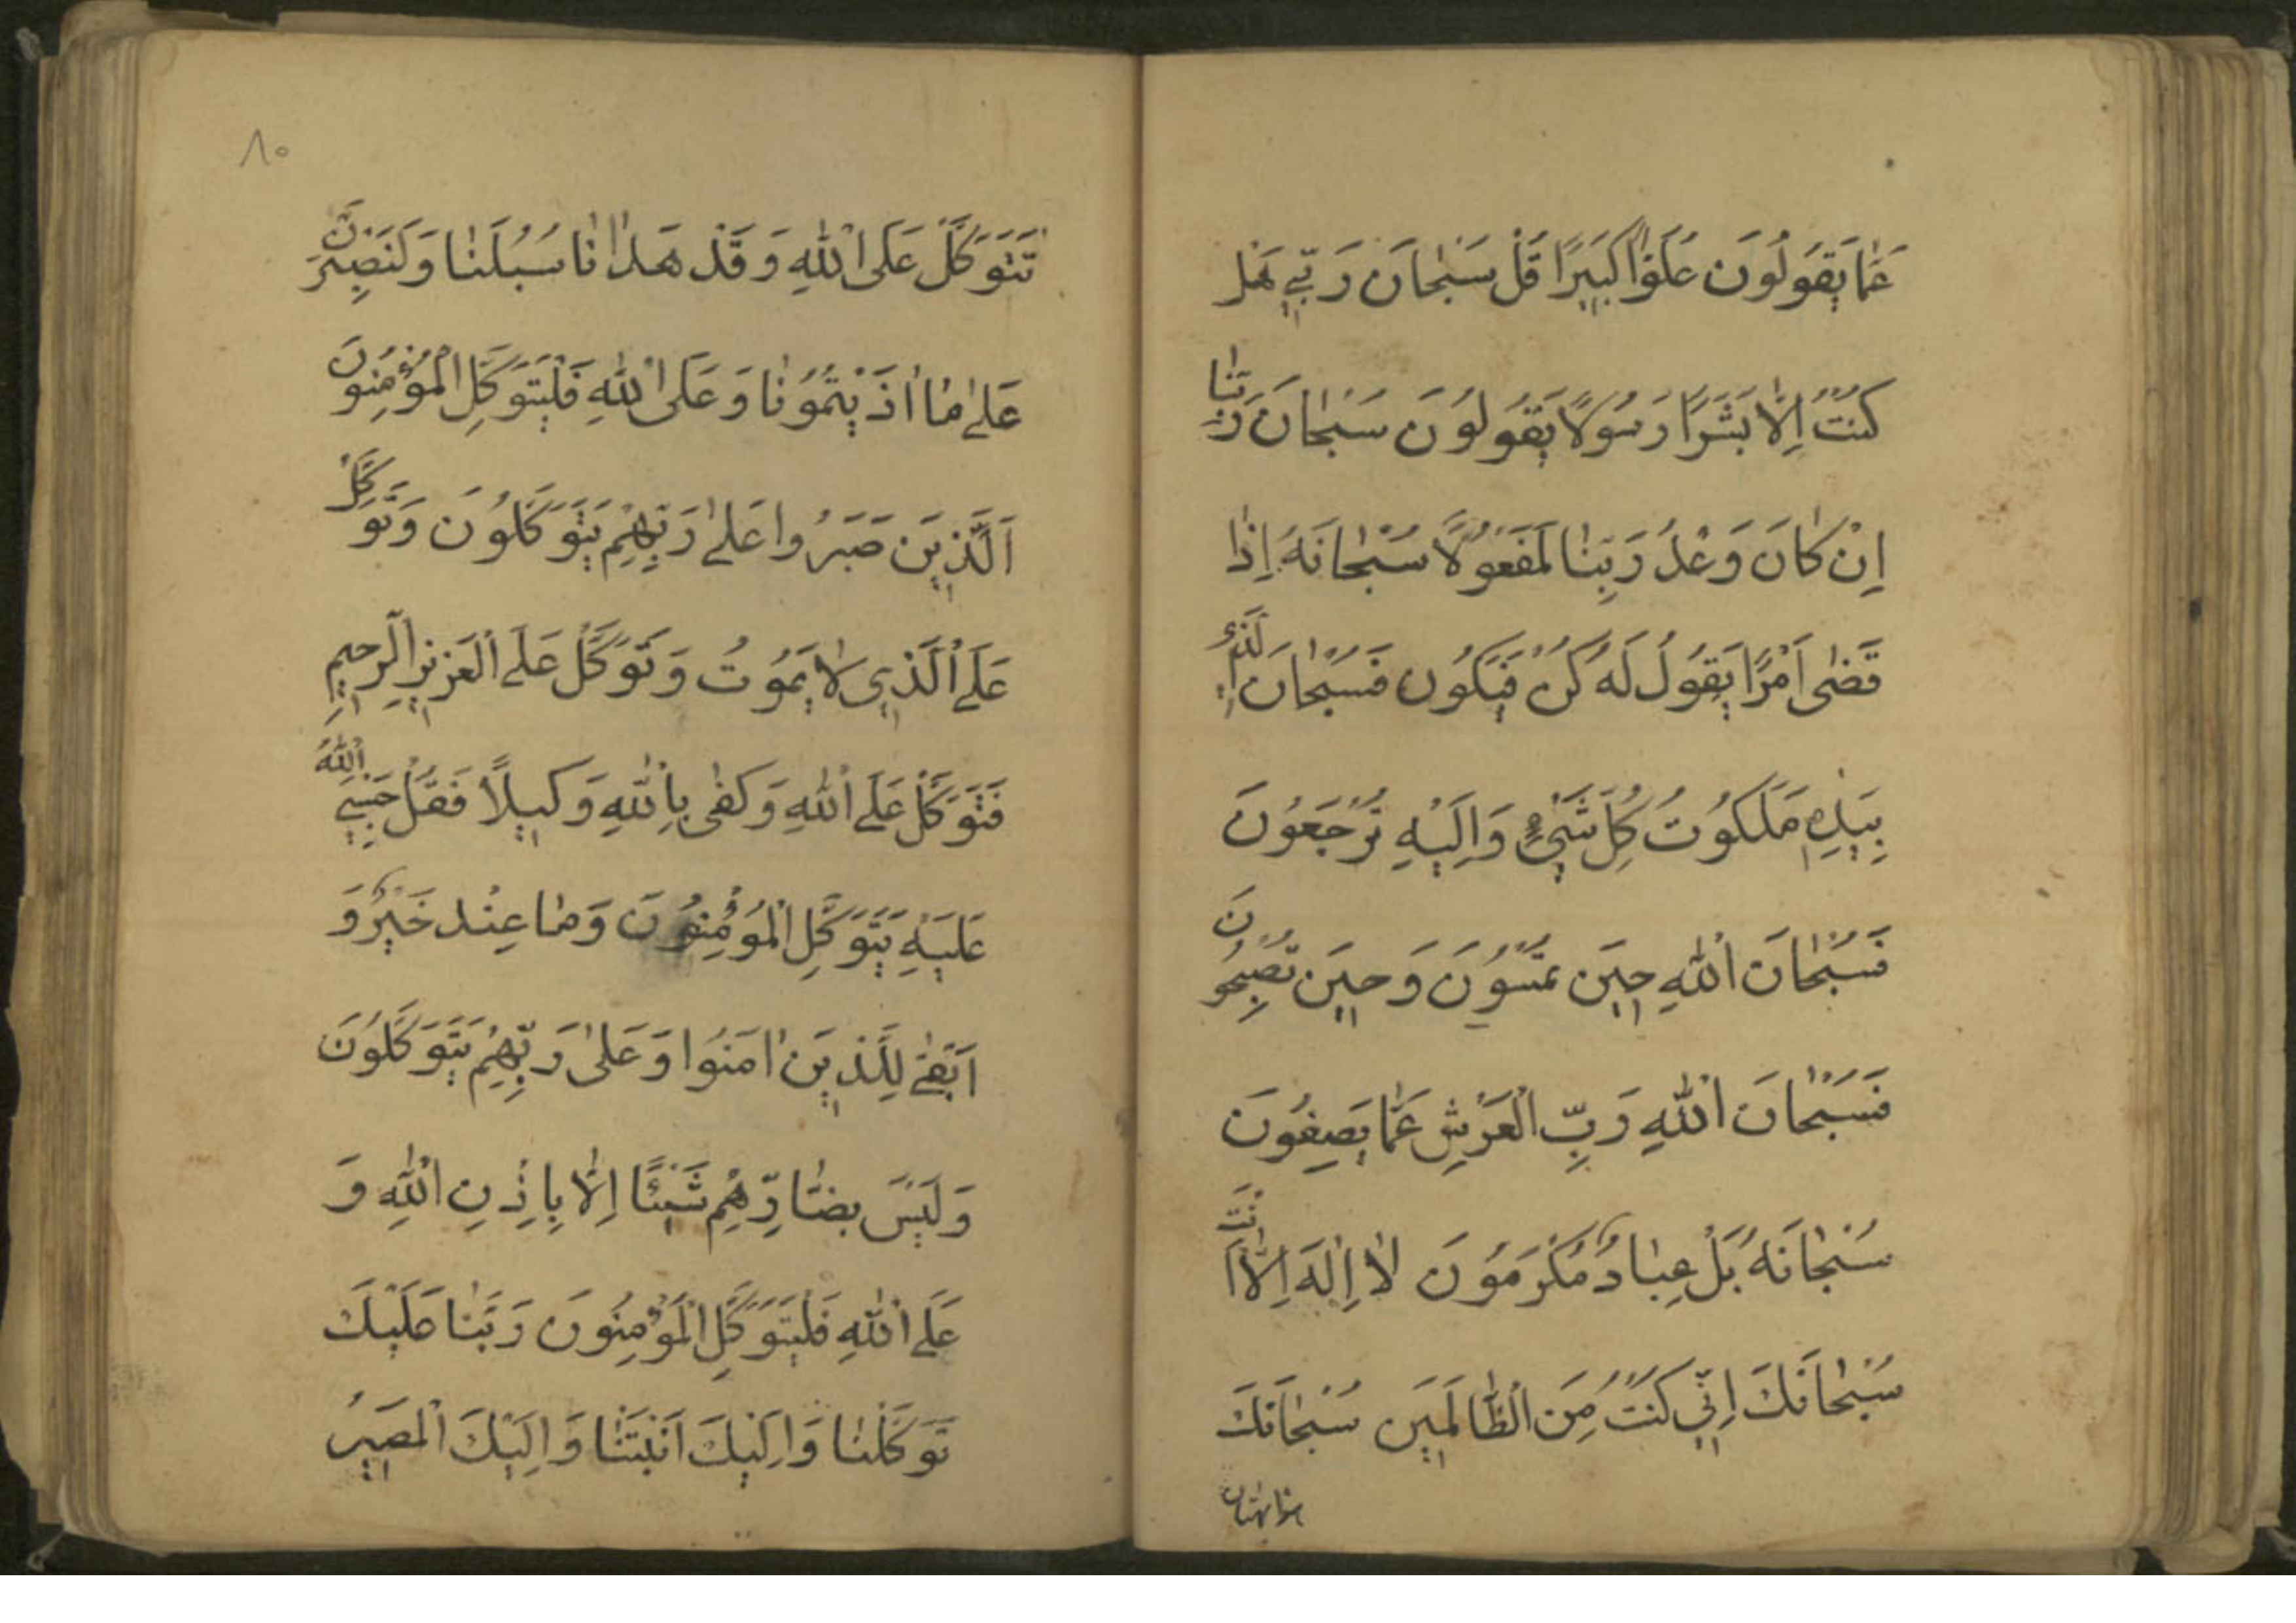 عَمّٰا يَقُولُونَ عُلُوًّا كَبِيرًا قُلْ سُبْحٰانَ رَبّي هَلْ
كُنْتُ اِلّٰا بَشَرًا رَسُولًا يَقُولُونَ سُبْحٰانَ رَبِّنٰا
اِنْ كٰانَ وَعْدُ رَبِّنٰا لَمَفْعُولًا سُبْحٰانَهُ اِذٰا
قَضٰى اَمْرًا يَقُولُ لَهُ كُنْ فَيَكُون فَسُبْحٰانَ الَّذي
بِيَدِهِ مَلَكُوتُ كُلِّ شَيْءٍ وَاِلَيْهِ تُرْجَعُونَ
فَسُبْحٰانَ اللّٰهِ حِينَ تُمْسُونَ وَحِينَ تُصْبِحُونَ
فَسُبْحٰانَ اللّٰهِ رَبِّ الْعَرْشِ عَمّٰا يَصِفُونَ
سُبْحٰانَهُ بَلْ عِبٰادٌ مُكْرَمُونَ لٰا اِلٰهَ اِلّٰا اَنْتَ
سُبْحٰانَكَ اِنّي كُنْتُ مِنَ الظّٰالِمِينَ سُبْحٰانَكَ
هذا بهتان
٨٠
نَتَوَكَّلَ عَلَى اللّٰهِ وَقَدْ هَدٰانٰا سُبُلَنٰا وَلَنَصْبِرَنَّ
عَلىٰ مٰا اٰذَيْتُمُونٰا وَعَلَى اللّٰهِ فَلْيَتَوَكَّلِ الْمُؤْمِنُونَ
اَلَّذِينَ صَبَرُوا عَلىٰ رَبِّهِمْ يَتَوَكَّلُونَ وَتَوَكَّلْ
عَلَى الَّذِي لٰا يَمُوتُ وَتَوَكَّلْ عَلَى الْعَزِيزِ الرَّحِيمِ
فَتَوَكَّلْ عَلَى اللّٰهِ وَكَفٰى بِاللّٰهِ وَكِيلًا فَقُلْ حَسْبِيَ اللّٰهُ
عَلَيْهِ يَتَوَكَّلِ الْمُؤْمِنُونَ وَمٰا عِنْد خَيْرٌ وَ
اَبْقىٰ لِلَّذِينَ اٰمَنُوا وَعَلىٰ رَبِّهِمْ يَتَوَكَّلُونَ
وَلَيْسَ بِضٰارِّهِمْ شَيْئًا اِلّٰا بِاِذْنِ اللّٰهِ وَ
عَلَى اللّٰهِ فَلْيَتَوَكَّلِ الْمُؤْمِنُونَ رَبَّنٰا عَلَيْكَ
تَوَكَّلْنٰا وَاِلَيْكَ اَنَبْنٰا وَاِلَيْكَ الْمَصِيرُ